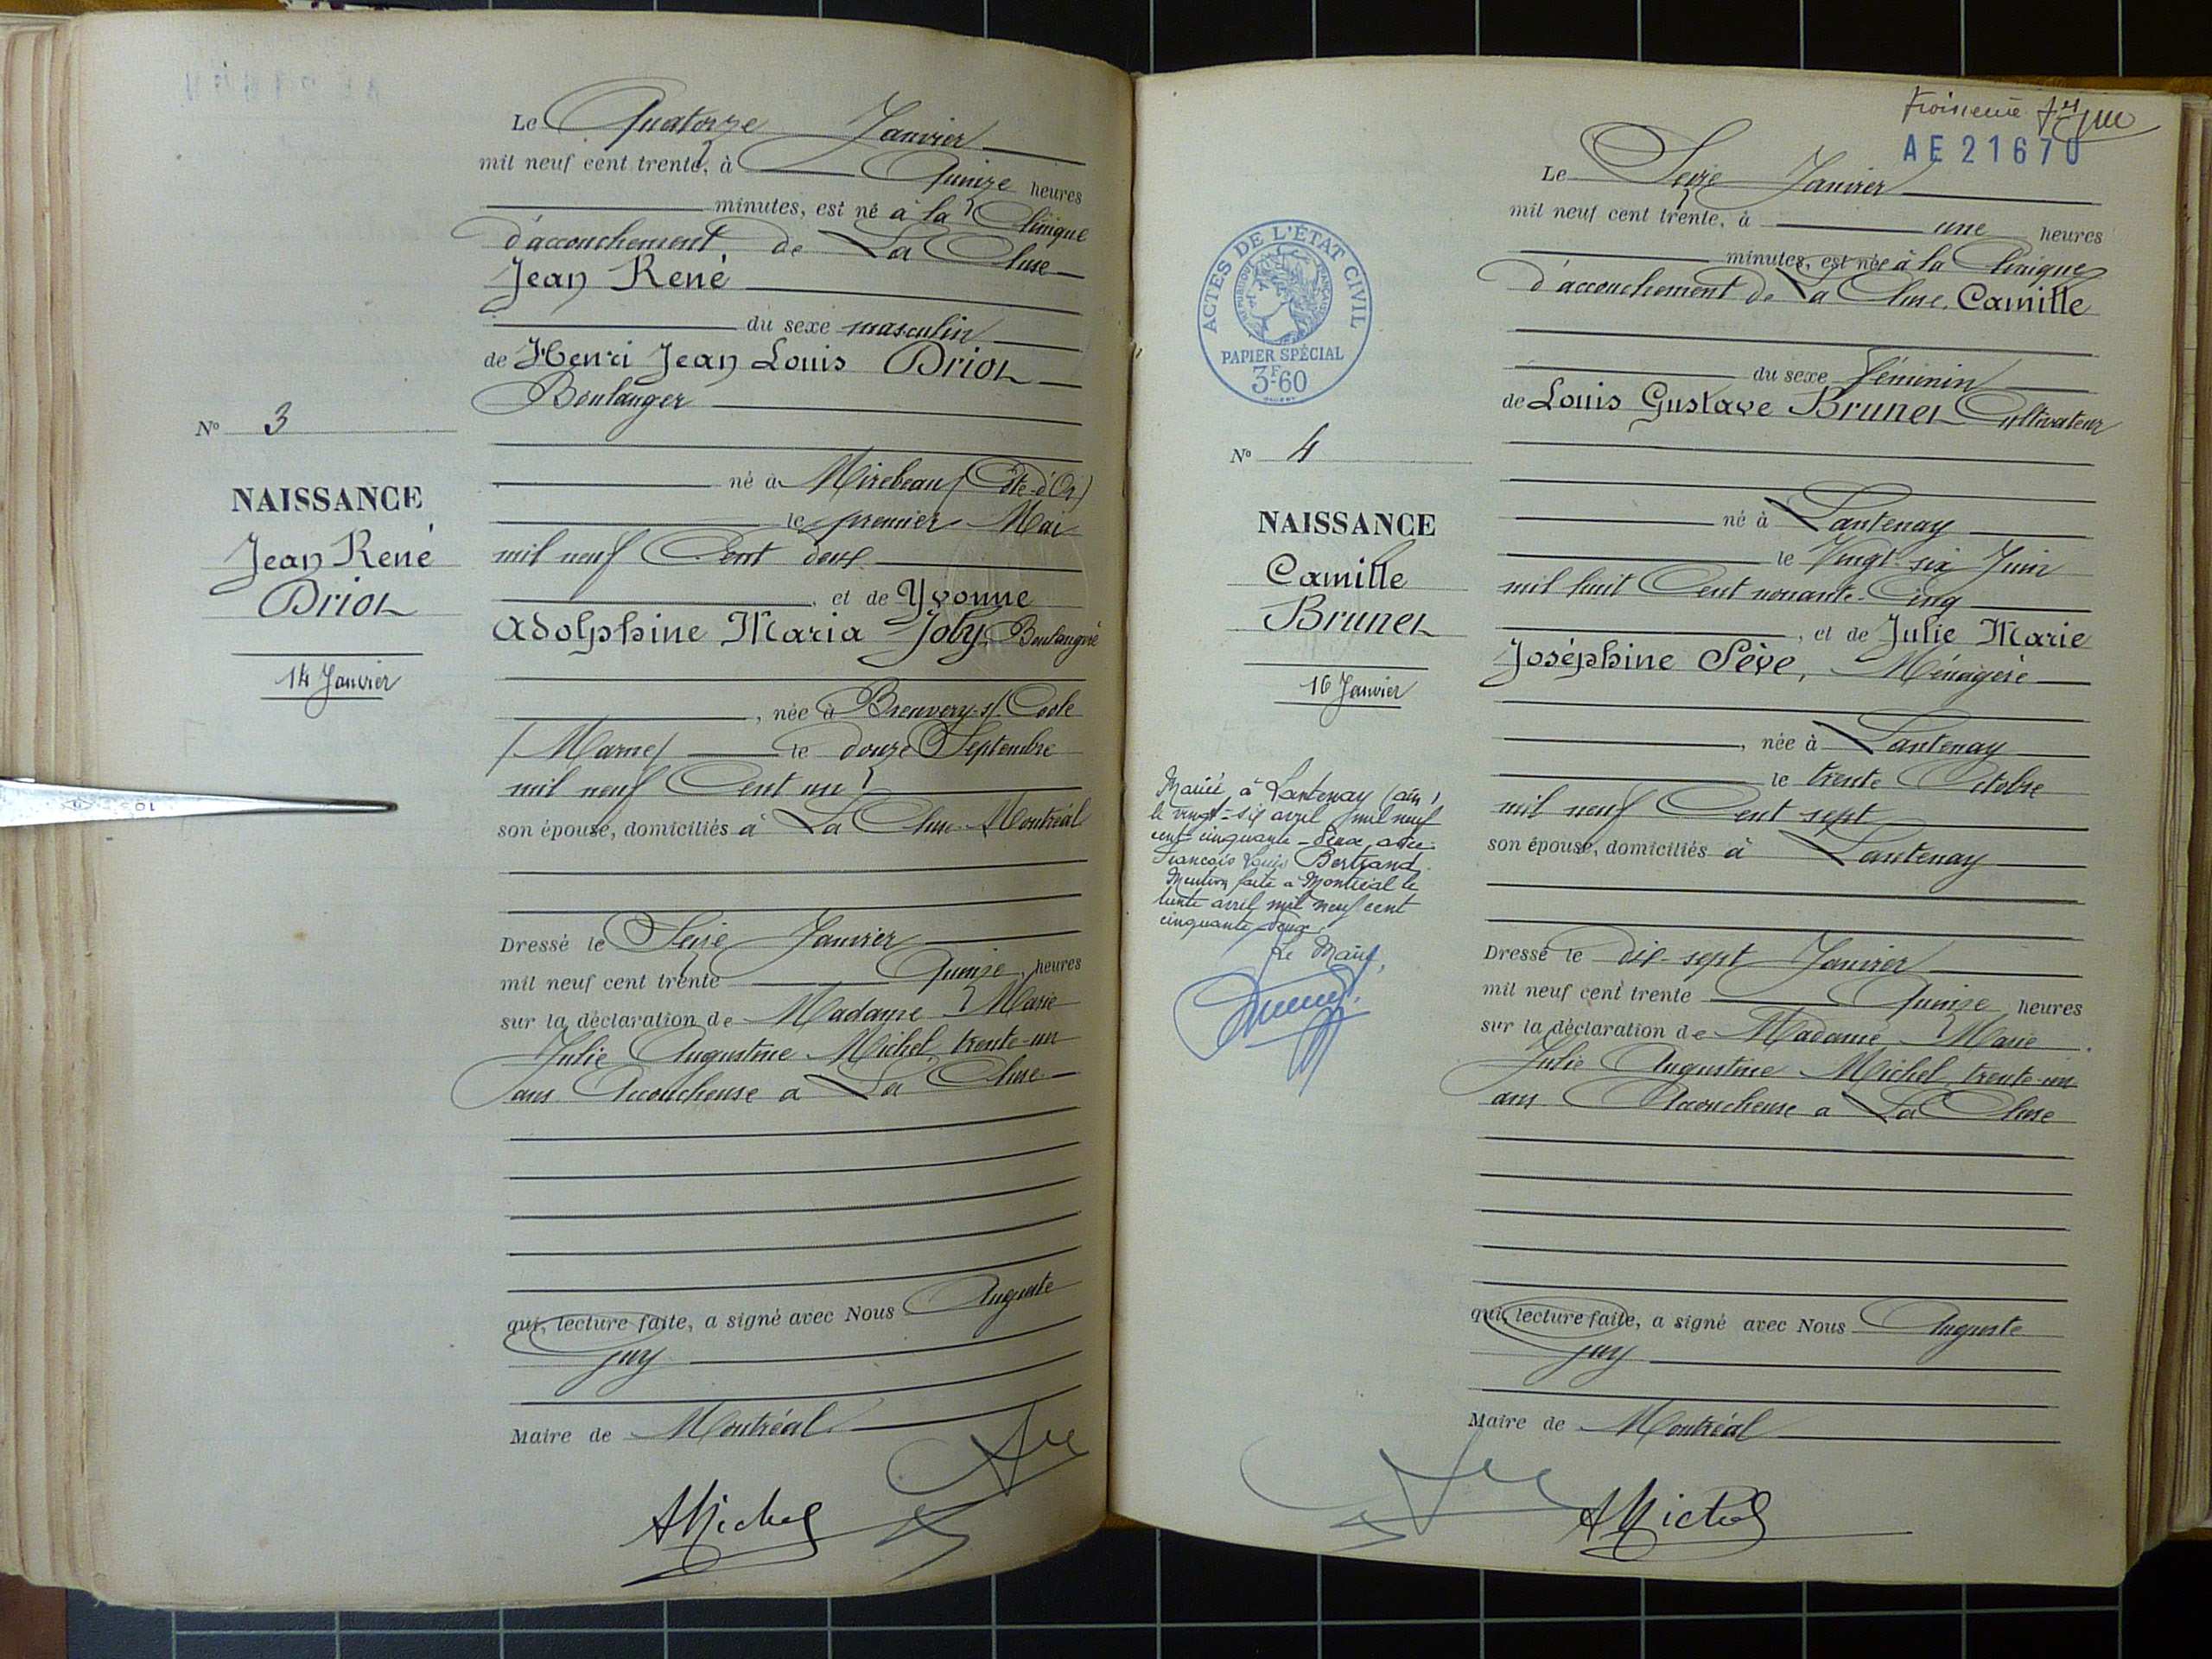 Le Quatorze Janvier
mil neuf cent trente, à Quinze heures
minutes, est né à la Clinique
d'accouchement de La Cluse
Jean René
du sexe masculin
de Henri Jean Louis Driot
Boulanger
né à Mirebeau (Côte-d'Or)
le premier Mai
mil neuf Cent deux
, et de Yvonne
Adolphine Maria Joly, Boulangère
, née à Breuvery-s/-Coole
(Marne) le douze Septembre
mil neuf Cent un
son épouse, domiciliés à La Cluse-Montréal
Dressé le Seize Janvier
mil neuf cent trente Quinze heures
sur la déclaration de Madame Marie
Julie Augustine Michel, trente-un
ans Accoucheuse à La Cluse
qui, lecture faite, a signé avec Nous Auguste
Guy
Maire de Montréal
AMichel
N° 3
NAISSANCE
Jean René
Driot
14 Janvier
troisième
AE21670
Le Seize Janvier
mil neuf cent trente, à une heures
minutes, est née à la Clinique
d'accouchement de La Cluse, Camille
du sexe féminin
de Louis Gustave Brunet Cultivateur
né à Lantenay
le Vingt-six Juin
mil huit Cent nonante-Cinq
, et de Julie Marie
Joséphine Sève, Ménagère
, née à Lantenay
le trente Octobre
mil neuf Cent sept
son épouse, domiciliés à Lantenay
Dressé le dix-sept Janvier
mil neuf cent trente Quinze heures
sur la déclaration de Madame Marie
Julie Augustine Michel, trente-un
ans Accoucheuse à La Cluse
qui, lecture faite, a signé avec Nous Auguste
Guy
Maire de Montréal
AMichel
ACTES DE L'ÉTAT CIVIL
RÉPUBLIQUE FRANÇAISE
PAPIER SPÉCIAL
3F60
N° 4
NAISSANCE
Camille
Brunet
16 Janvier
Mariée à Lantenay (Ain)
le vingt-six avril mil neuf
cent cinquante-deux avec
François Louis Bertrand.
Mention faite à Montréal le
trente avril mil neuf cent
cinquante deux.
Le Maire,